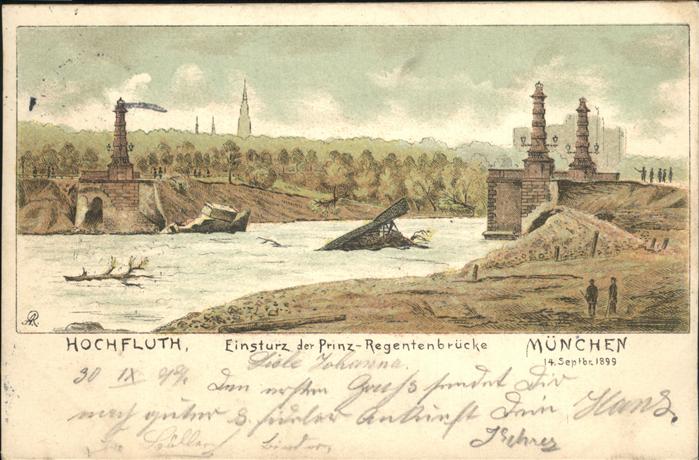 HOCHFLUTH, Einsturz der Prinz-Regentenbrücke MÜNCHEN
14. Septbr. 1899
Johanna
30 IX 99 Den ersten Gruß sendet Dir
nach guter & fideler Ankunft Dein Hans.